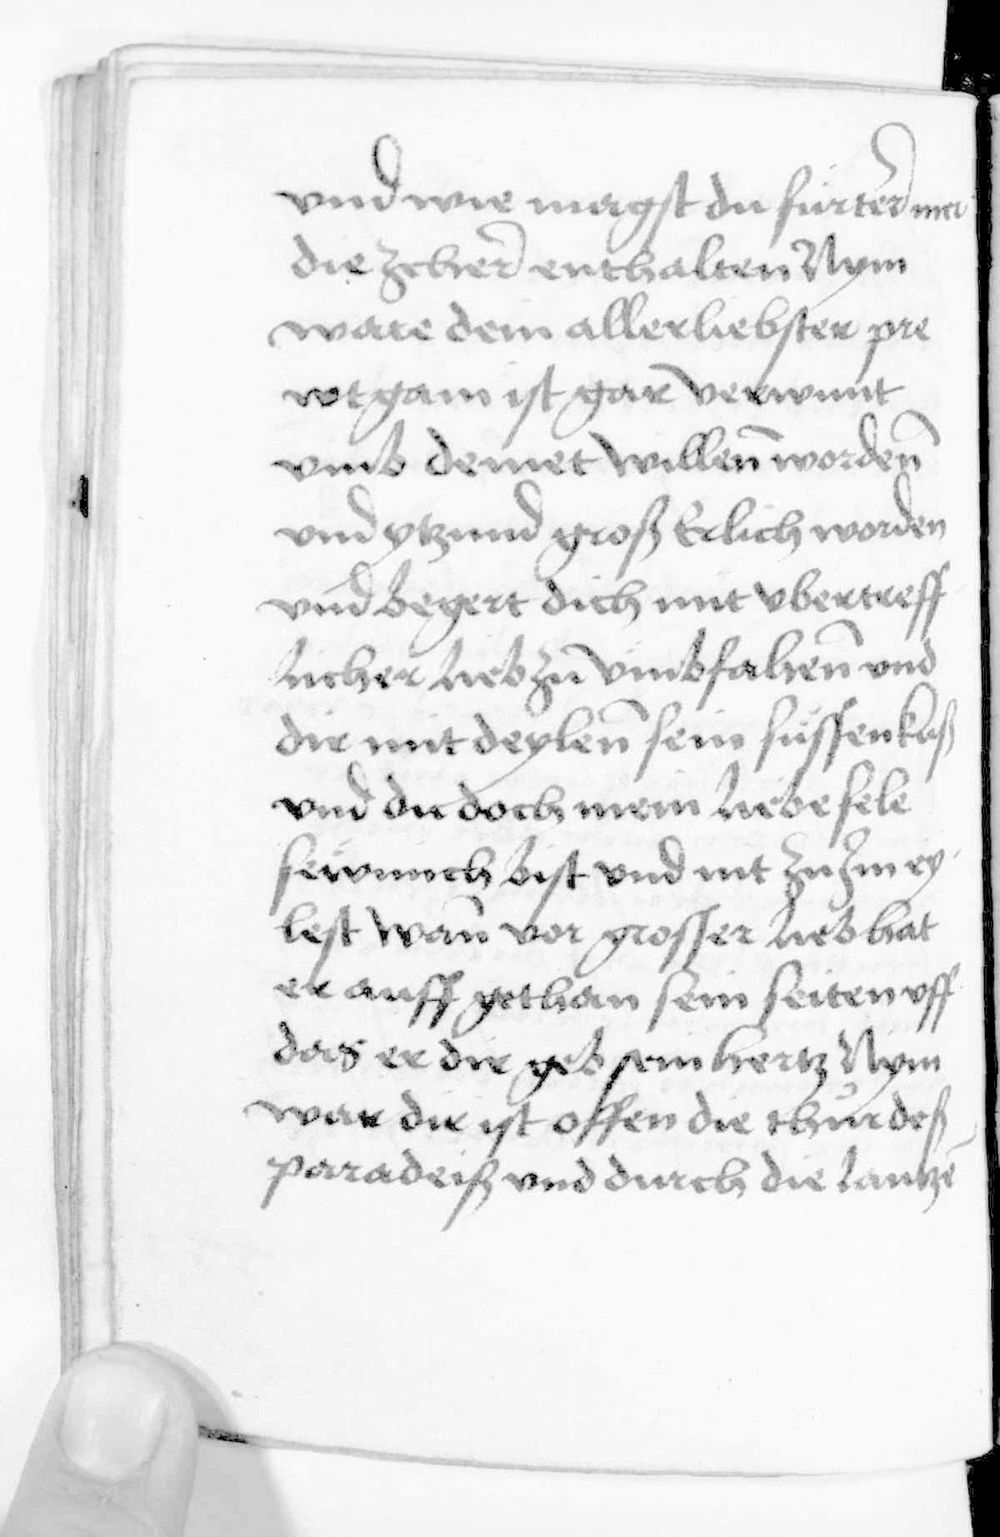 vnd wie magst du fürter mer
die zcher enthalten Nym
ware dein allerliebster pre
wtgam ist gar verwunt
vmb deinet willen̄ worden̄
vnd ytzund groß Erlich worden
vnd begert dich mit vbertreff
licher lieb zu vmbfahen̄ vnd
dir mit deylen̄ sein süssen kuß
vnd du doch mein liebe sele
sewmich bist vnd nit zu Jm ey
lest wan̄ vor grosser lieb hat
er auff gethan sein seiten vff
das er dir geb sein hertz Nym
war dir ist offen die thür deß
paradeiß vnd durch die lantzē